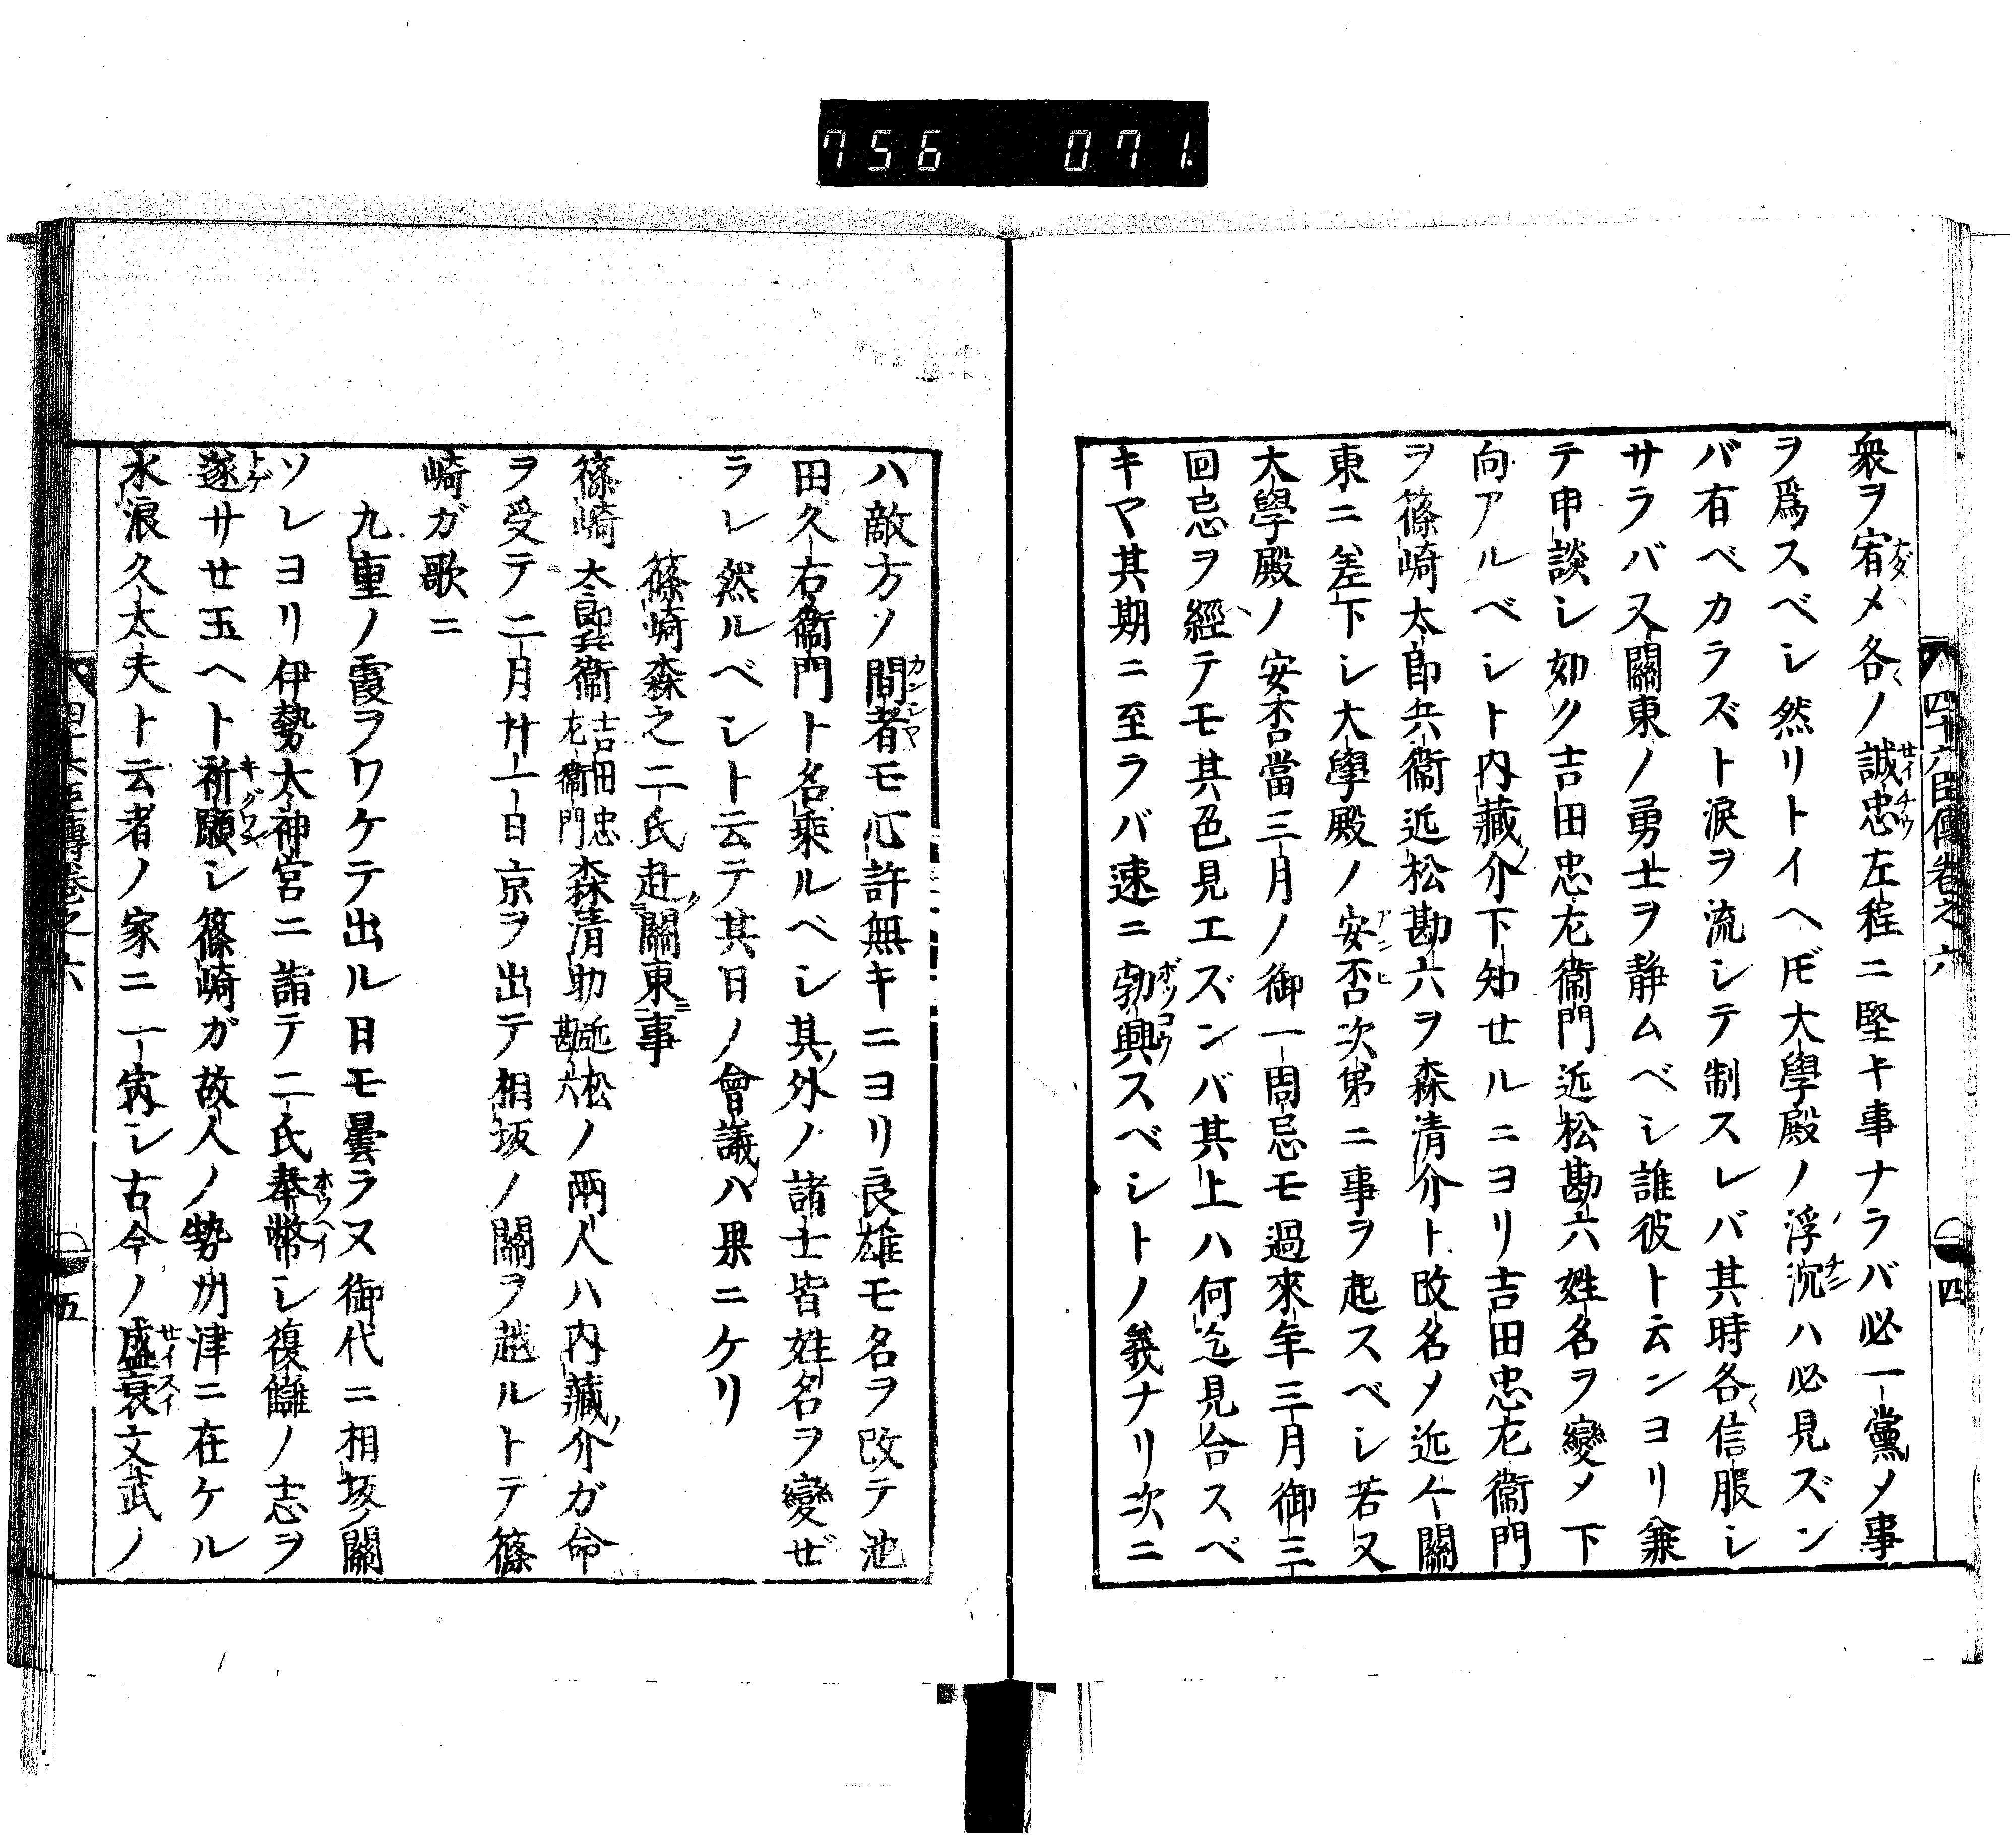 756 071.
四十六臣傳卷之六
四
衆ヲ宥メ各ノ誠忠左程ニ堅キ事ナラバ必一黨メ事
ヲ爲スベシ然リトイヘ𪜈大學殿ノ浮沉ハ必見ズン
バ有ベカラズト涙ヲ流シテ制スレバ其時各信服シ
サラバ又關東ノ勇士ヲ静ムベシ誰彼ト云ンヨリ兼
テ申談シ如ク吉田忠左衞門近松勘六姓名ヲ變メ下
向アルベシト内藏介下知せルニヨリ吉田忠左衞門
ヲ篠崎太郎兵衞近松勘六ヲ森清介ト改名メ近々關
東ニ差下シ大學殿ノ安否次第ニ事ヲ起スベシ若又
大學殿ノ安否當三月ノ御一周忌モ過來年三月御三
回忌ヲ經テモ其色見エズンバ其上ハ何迄見合スベ
キヤ其期ニ至ラバ速ニ勃興スベシトノ義ナリ次ニ
ハ敵方ノ間者モ心許無キニヨリ良雄モ名ヲ改テ池
田久右衞門ト名乘ルベシ其外ノ諸士皆姓名ヲ變ぜ
ラレ然ルベシト云テ其日ノ會議ハ果ニケリ
篠崎森之二氏赴關東事
篠崎太郎兵衞吉田忠左衞門森清助近松勘六ノ兩人ハ内藏介ガ命
ヲ受テ二月廾一日京ヲ出テ相坂ノ關ヲ越ルトテ篠
崎ガ歌ニ
九重ノ霞ヲワケテ出ル日モ曇ラヌ御代ニ相坂ノ關
ソレヨリ伊勢大神宮ニ詣テ二氏奉幣シ復讎ノ志ヲ
遂サせ玉ヘト祈願シ篠崎ガ故人ノ勢州津ニ在ケル
水浪久太夫ト云者ノ家ニ一宿シ古今ノ盛衰文武ノ
四十六臣傳卷之六
五